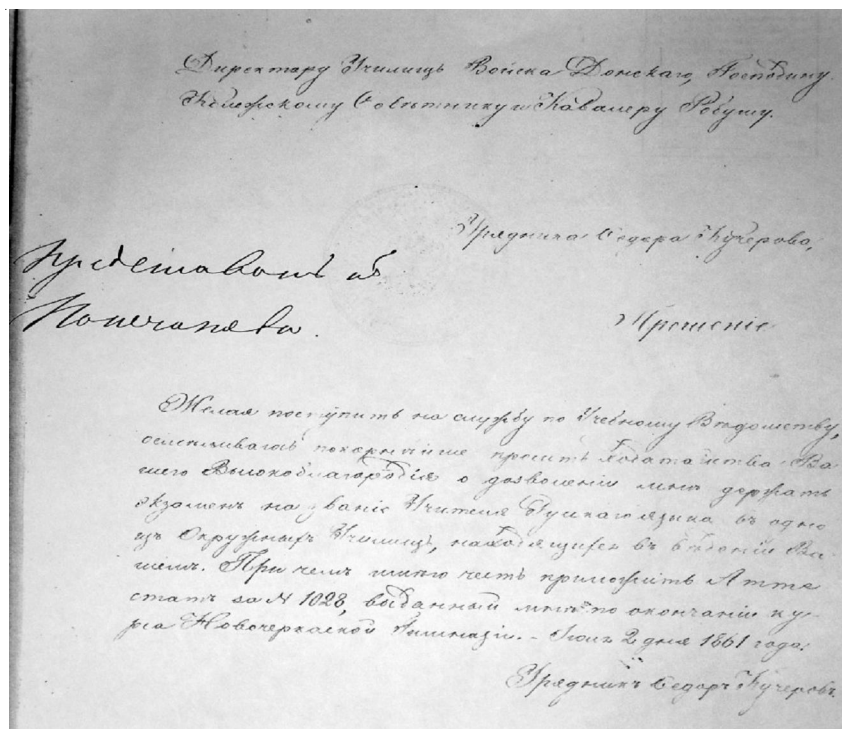 Директору Училищъ Войска Донскаго, Господину
Коллежскому Совѣтнику и Кавалеру Робушу.
Урядника Ѳедора Кучерова,
Прошеніе
Желая поступить на службу по Учебному Вѣдомству,
осмѣливаюсь покорнѣйше просить ходатайства Ва-
шего Высокоблагородія о дозволеніи мнѣ держать
экзаменъ на званіе Учителя Русскаго языка въ одно
изъ Окружныхъ Училищъ, находящихся въ вѣденіи Ва-
шемъ. При чемъ имѣю честь приложить Атте
статъ за N 1028, выданный мнѣ по окончаніи ку-
рса Новочеркаской Гимназіи. - 2 дня 1861 года.
Урядникъ Ѳедоръ Кучеровъ.